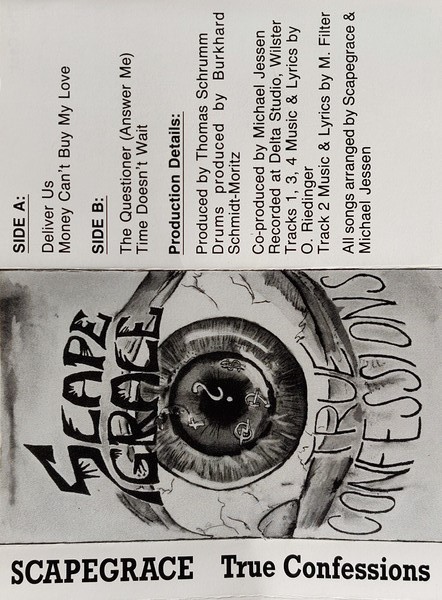 SIDE A:
Deliver Us
Money Can't Buy My Love
SIDE B:
The Questioner (Answer Me)
Time Doesn't Wait
Production Details:
Produced by Thomas Schrumm
Drums produced by Burkhard
Schmidt-Moritz
Co-produced by Michael Jessen
Recorded at Delta Studio, Wilster
Tracks 1, 3, 4 Music & Lyrics by
O. Riedinger
Track 2 Music & Lyrics by M. Filter
All songs arranged by Scapegrace &
Michael Jessen
SCAPE
GRACE
?
$
TRUE
CONFESSIONS
SCAPEGRACE True Confessions